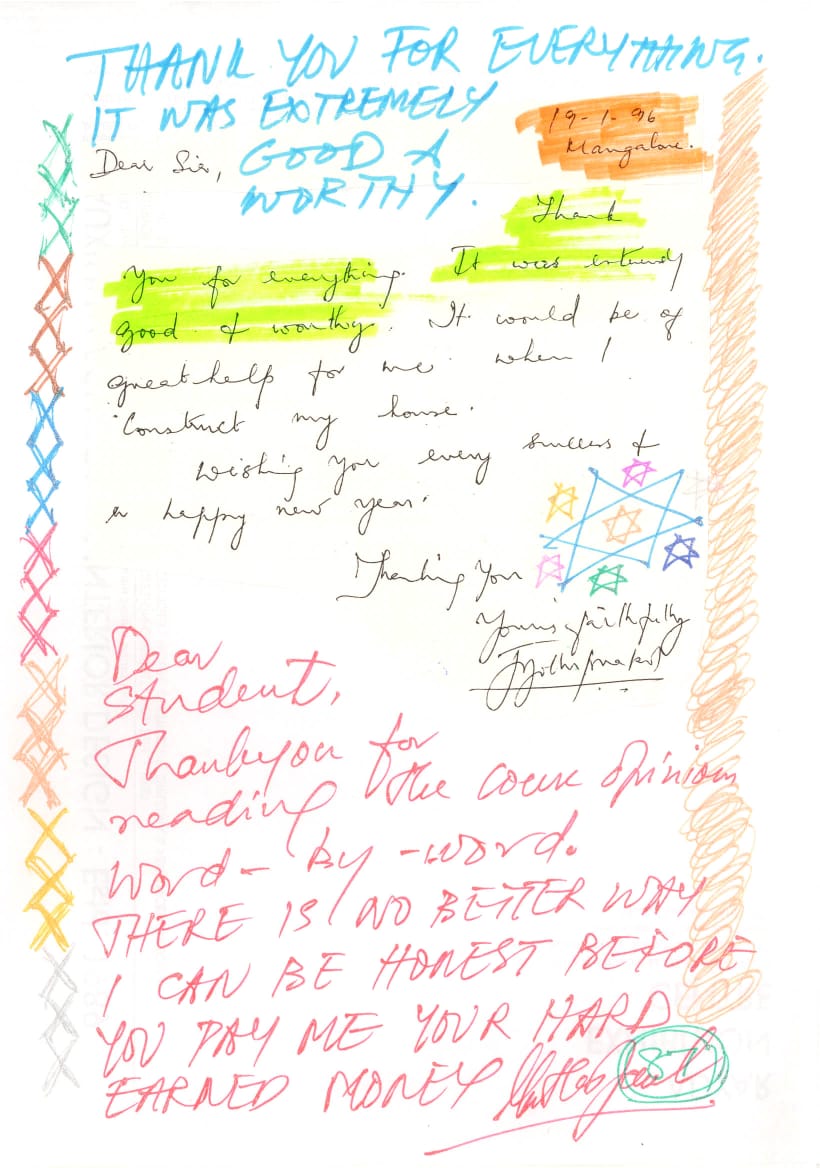 THANK YOU FOR EVERYTHING.
IT WAS EXTREMELY
GOOD &
WORTHY.
19-1-96
Mangalore.
Dear Sir,
Thank
You for everything. It was extremely
good & worthy. It would be of
great help for me when I
construct my house.
Wishing you every success &
a happy new year.
Thanking You
Yours faithfully
Dear
Student,
Thankyou for
reading the course opinion
word-by-word.
THERE IS NO BETTER WAY
I CAN BE HONEST BEFORE
YOU PAY ME YOUR HARD
EARNED MONEY
87